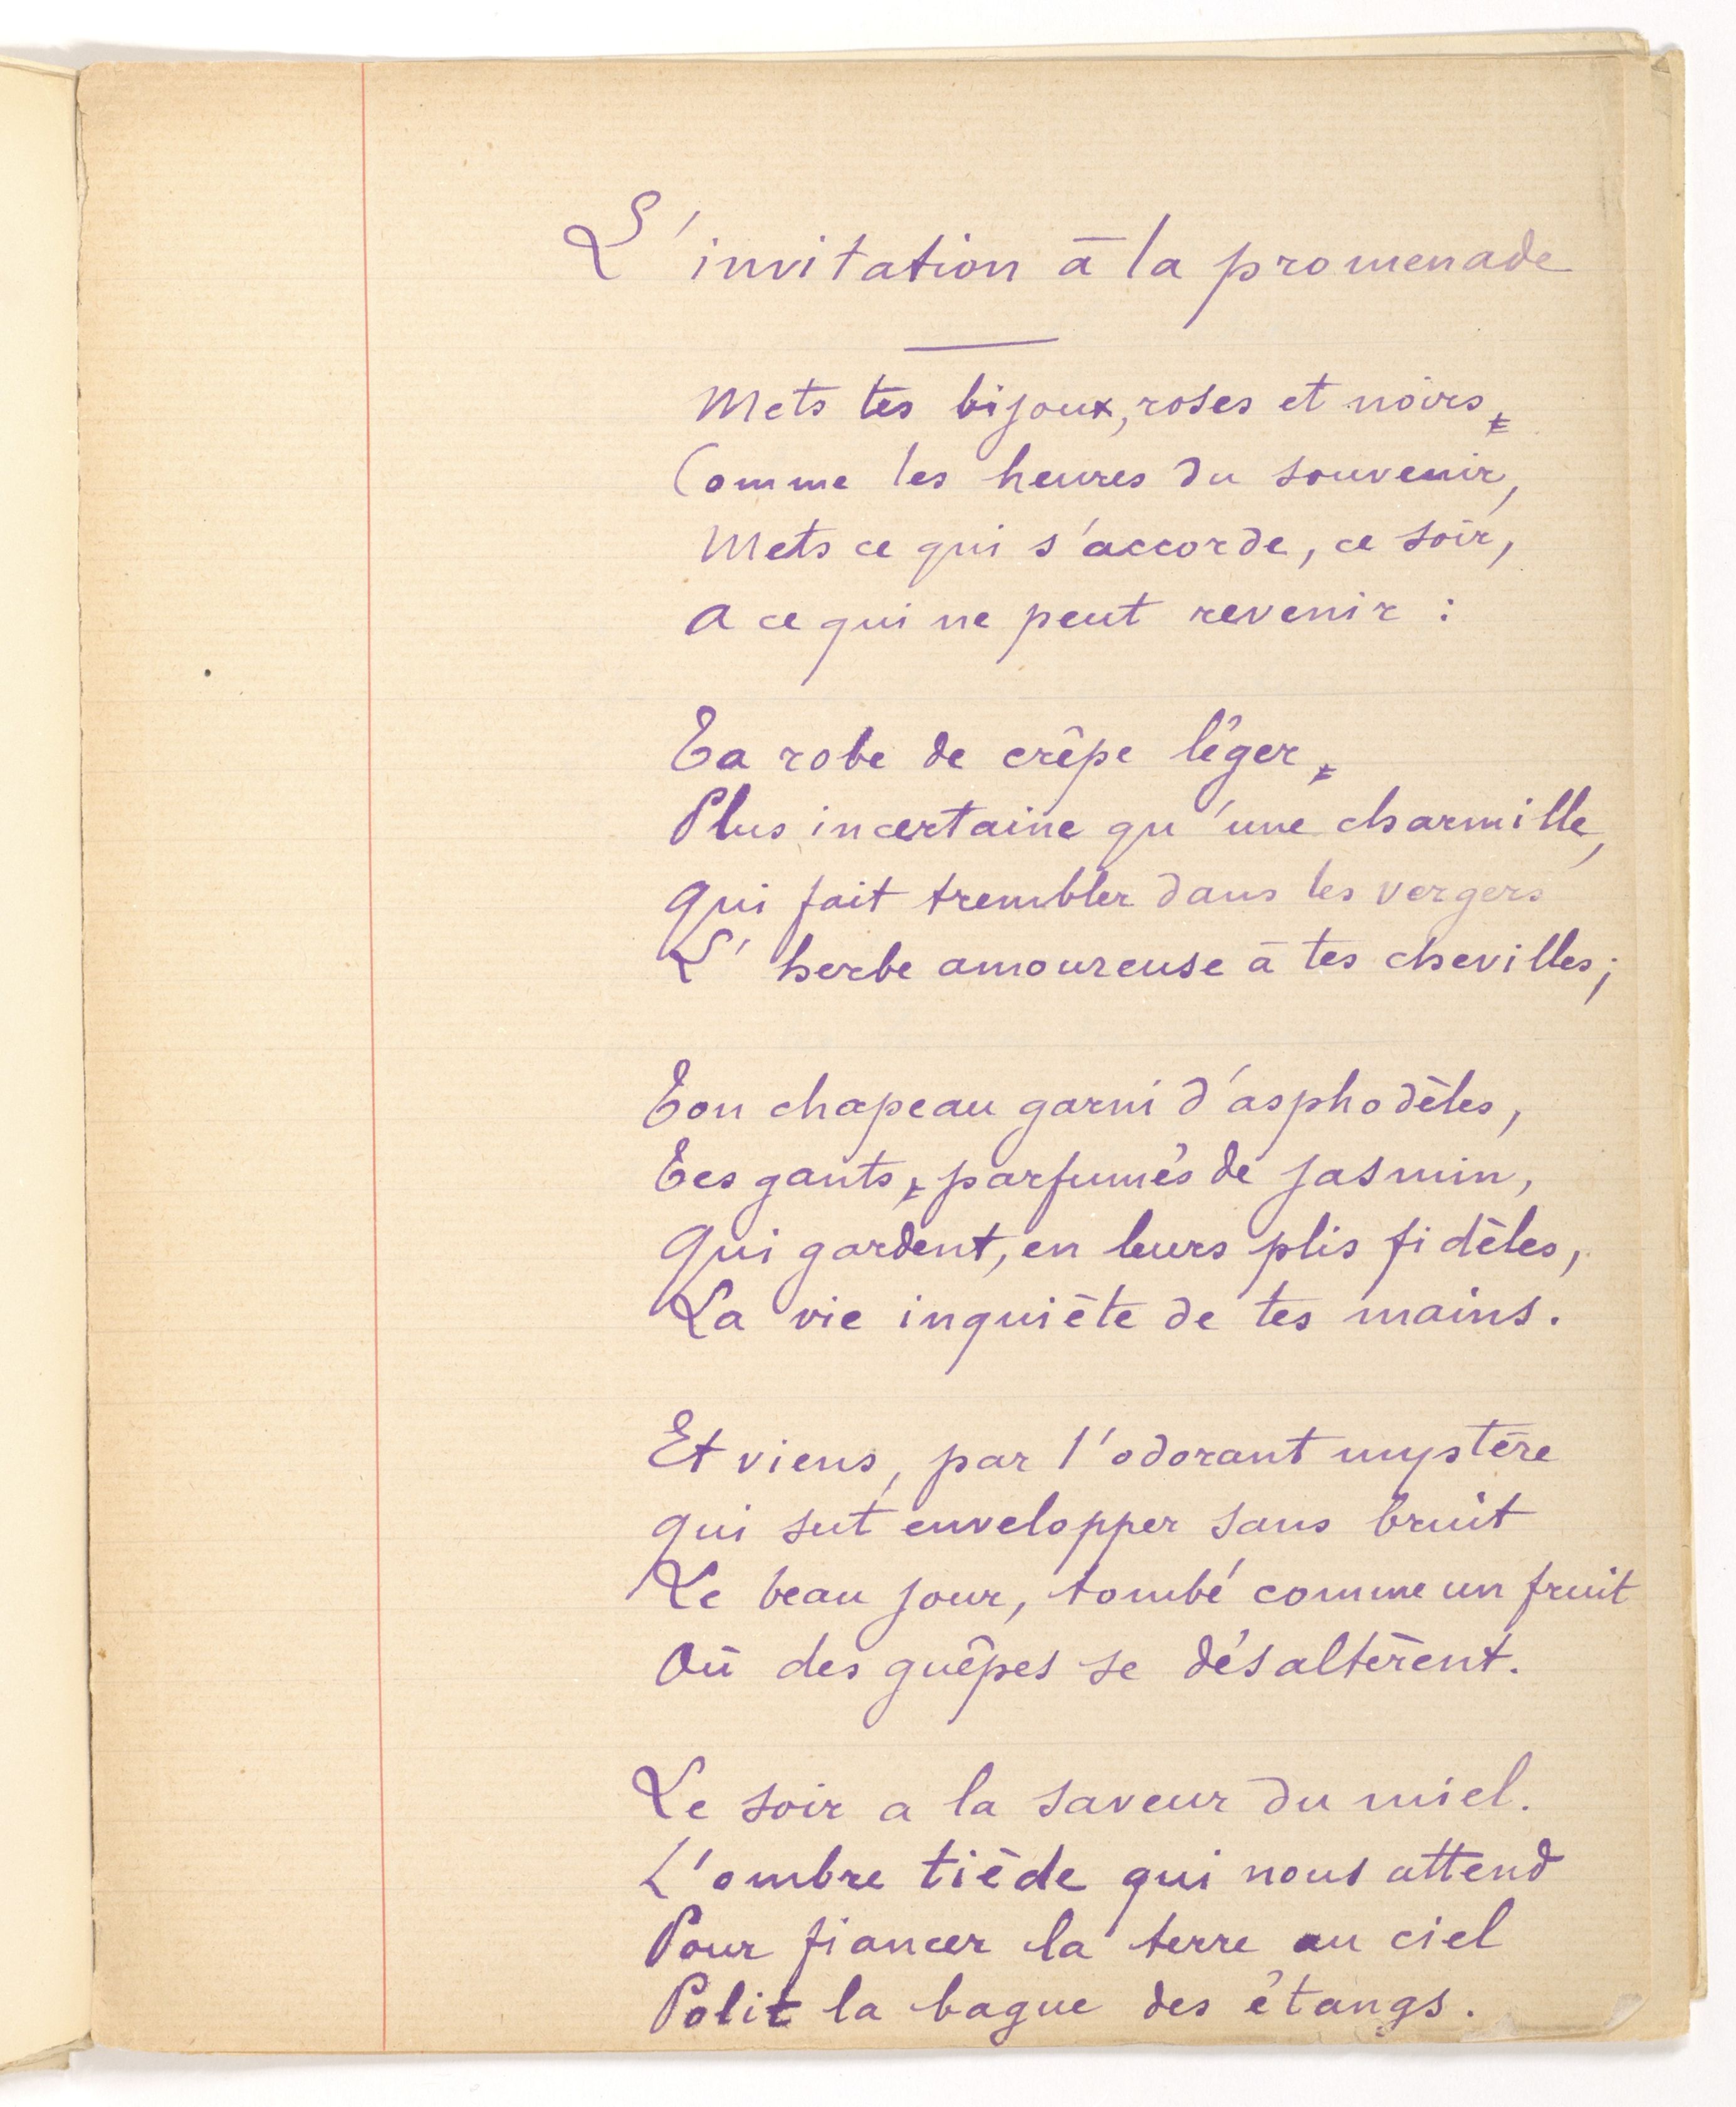 L'invitation à la promenade
Mets tes bijoux, roses et noirs
Comme les heures du souvenir,
Mets ce qui s'accorde, ce soir,
A ce qui ne peut revenir :
Ta robe de crêpe léger
Plus incertaine qu'une charmille,
Qui fait trembler dans les vergers
L'herbe amoureuse à tes chevilles ;
Ton chapeau garni d'asphodèles,
Tes gants parfumés de jasmin,
Qui gardent, en leurs plis fidèles,
La vie inquiète de tes mains.
Et viens, par l'odorant mystère
qui sut envelopper sans bruit
Le beau jour, tombé comme un fruit
Où des guêpes se désaltèrent.
Le soir a la saveur du miel.
L'ombre tiède qui nous attend
Pour fiancer la terre au ciel
Polit la bague des étangs.